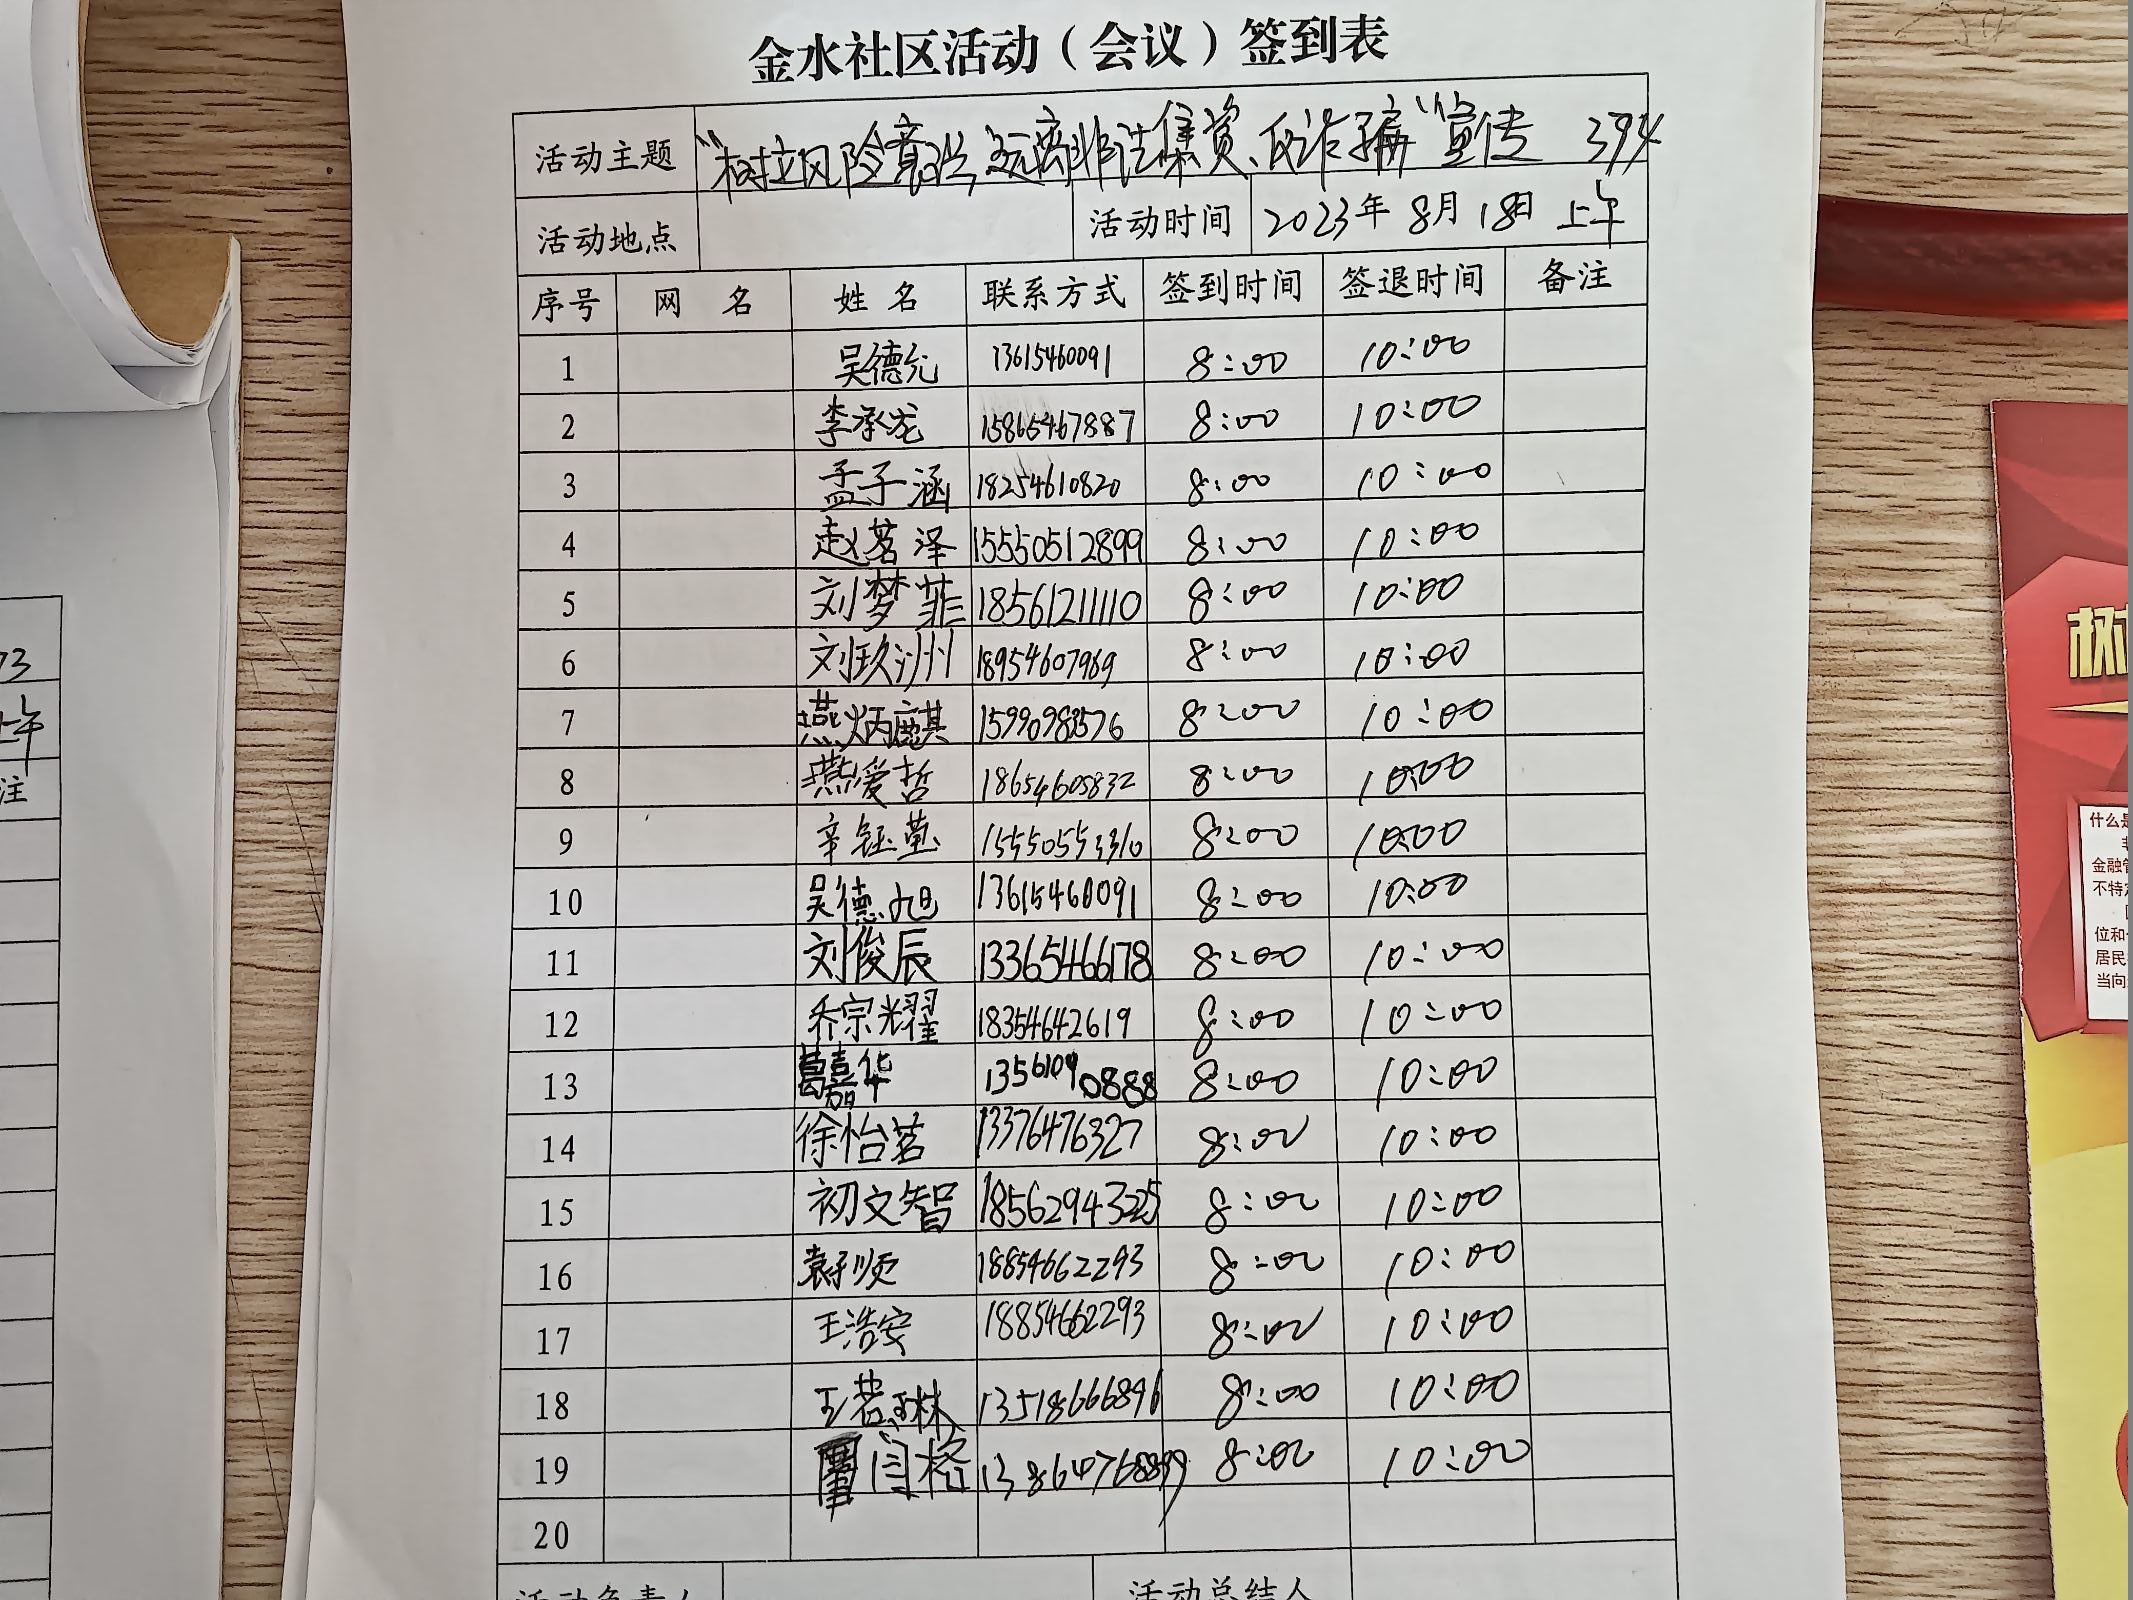 金水社区活动（会议）签到表
活动主题 “树立风险意识，远离非法集资、反诈骗”宣传 394
活动地点 活动时间 2023年8月18日 上午
序号 网 名 姓 名 联系方式 签到时间 签退时间 备注
1 吴德允 13615460091 8:00 10:00
2 李承龙 15865467887 8:00 10:00
3 孟子涵 18254610820 8:00 10:00
4 赵茗泽 15550512899 8:00 10:00
5 刘梦菲 18561211110 8:00 10:00
6 刘玖洲 18954607969 8:00 10:00
7 燕炳麒 15990983576 8:00 10:00
8 燕爱哲 18654605832 8:00 10:00
9 辛钰莹 15550553310 8:00 10:00
10 吴德旭 13615460091 8:00 10:00
11 刘俊辰 13365466178 8:00 10:00
12 乔宗耀 18354642619 8:00 10:00
13 葛嘉华 13561090888 8:00 10:00
14 徐怡茗 13376476327 8:00 10:00
15 初文智 18562943225 8:00 10:00
16 袁子顺 18854662293 8:00 10:00
17 王浩安 18854662293 8:00 10:00
18 王若琳 13518666896 8:00 10:00
19 闫格 8:00 10:00
20
活动负责人 活动总结人
73
上午
注
树
什么是
金融管
不特定
位和
居民
当向